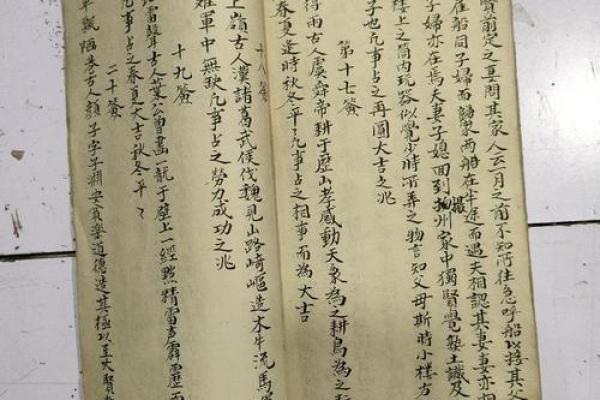 賢前定之其問其家人云二月之前不知所往急呼船以接其父
雇船同子婦而歸家两船在半途而遇夫相認其妻妻亦相
子婦亦在焉夫妻子媳面到撫州家中獨賢覺塾土識及
樓上之简内玩器似覺少時所弄之物言知父母斯時小樓方
子也凡事占之再圓大吉之兆
第十七簽
得雨古人虞舜帝耕于歷山孝感動天象為之耕鳥為之耘
春夏逢時秋冬平平凡事占之相事而為大吉
十八簽
上嶺古人漢諸葛武侯伐魏見山路崎嶇造木牛流馬運
粮軍中無缺凡事占之勞力成功之兆
十九簽
雷聲古人葉公會畫一龍于壁上一經點精雷声霹靂而
凡事占之春夏大吉秋冬平平
二十簽
單瓢陋巷古人顏子字子淵安貧樂道德造其極以至大賢